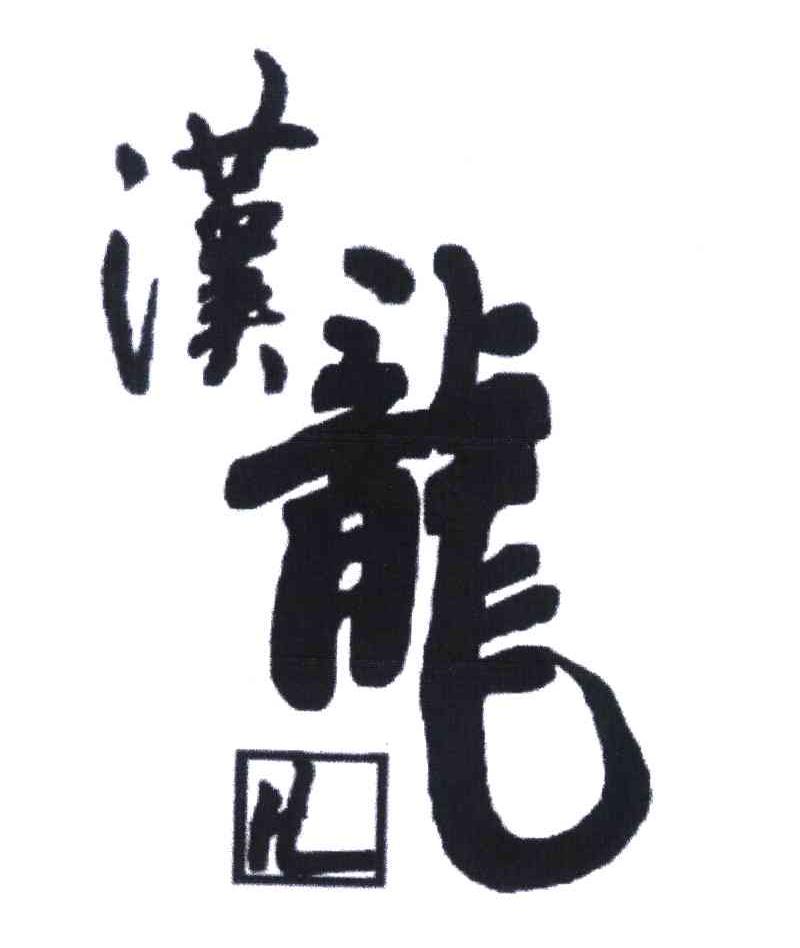 漢龍
HL